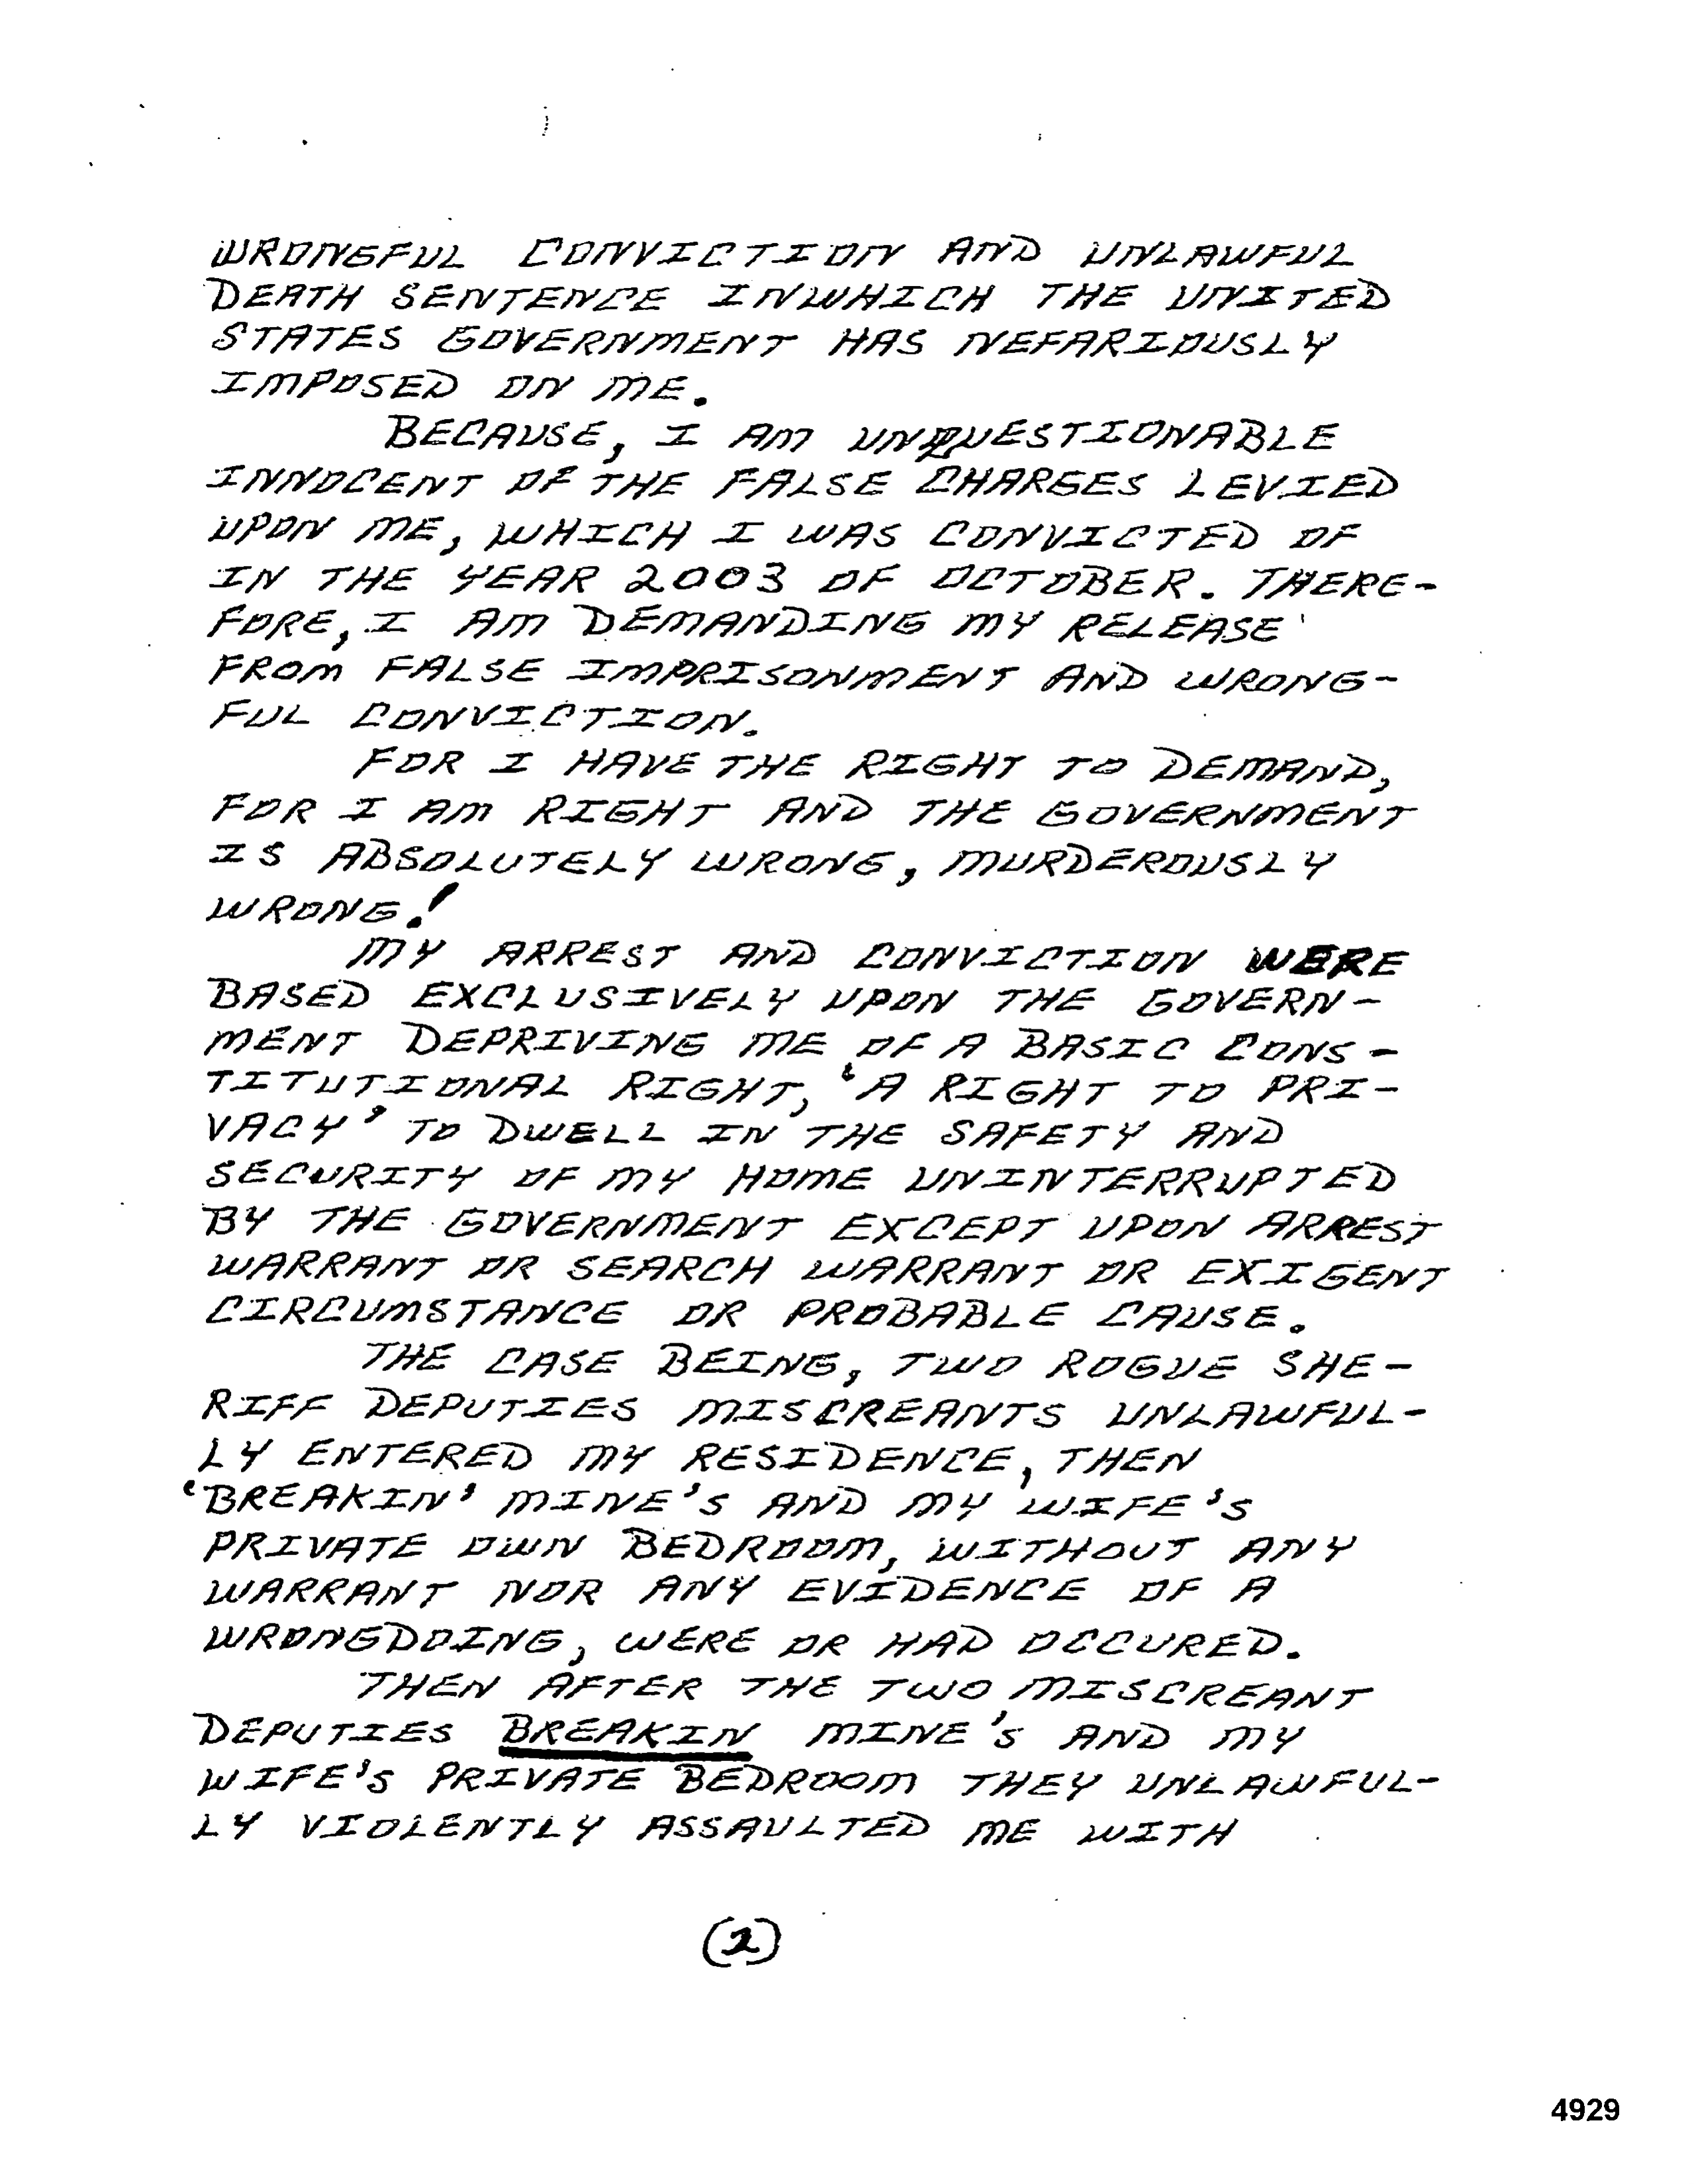 WRONGFUL CONVICTION AND UNLAWFUL
DEATH SENTENCE INWHICH THE UNITED
STATES GOVERNMENT HAS NEFARIOUSLY
IMPOSED ON ME.
BECAUSE, I AM UNQUESTIONABLE
INNOCENT OF THE FALSE CHARGES LEVIED
UPON ME, WHICH I WAS CONVICTED OF
IN THE YEAR 2003 OF OCTOBER. THERE-
FORE, I AM DEMANDING MY RELEASE
FROM FALSE IMPRISONMENT AND WRONG-
FUL CONVICTION.
FOR I HAVE THE RIGHT TO DEMAND,
FOR I AM RIGHT AND THE GOVERNMENT
IS ABSOLUTELY WRONG, MURDEROUSLY
WRONG!
MY ARREST AND CONVICTION WERE
BASED EXCLUSIVELY UPON THE GOVERN-
MENT DEPRIVING ME OF A BASIC CONS-
TITUTIONAL RIGHT, 'A RIGHT TO PRI-
VACY' TO DWELL IN THE SAFETY AND
SECURITY OF MY HOME UNINTERRUPTED
BY THE GOVERNMENT EXCEPT UPON ARREST
WARRANT OR SEARCH WARRANT OR EXIGENT
CIRCUMSTANCE OR PROBABLE CAUSE.
THE CASE BEING, TWO ROGUE SHE-
RIFF DEPUTIES MISCREANTS UNLAWFUL-
LY ENTERED MY RESIDENCE, THEN
'BREAKIN' MINE'S AND MY WIFE'S
PRIVATE OWN BEDROOM, WITHOUT ANY
WARRANT NOR ANY EVIDENCE OF A
WRONGDOING, WERE OR HAD OCCURED.
THEN AFTER THE TWO MISCREANT
DEPUTIES BREAKIN MINE'S AND MY
WIFE'S PRIVATE BEDROOM THEY UNLAWFUL-
LY VIOLENTLY ASSAULTED ME WITH
(2)
4929